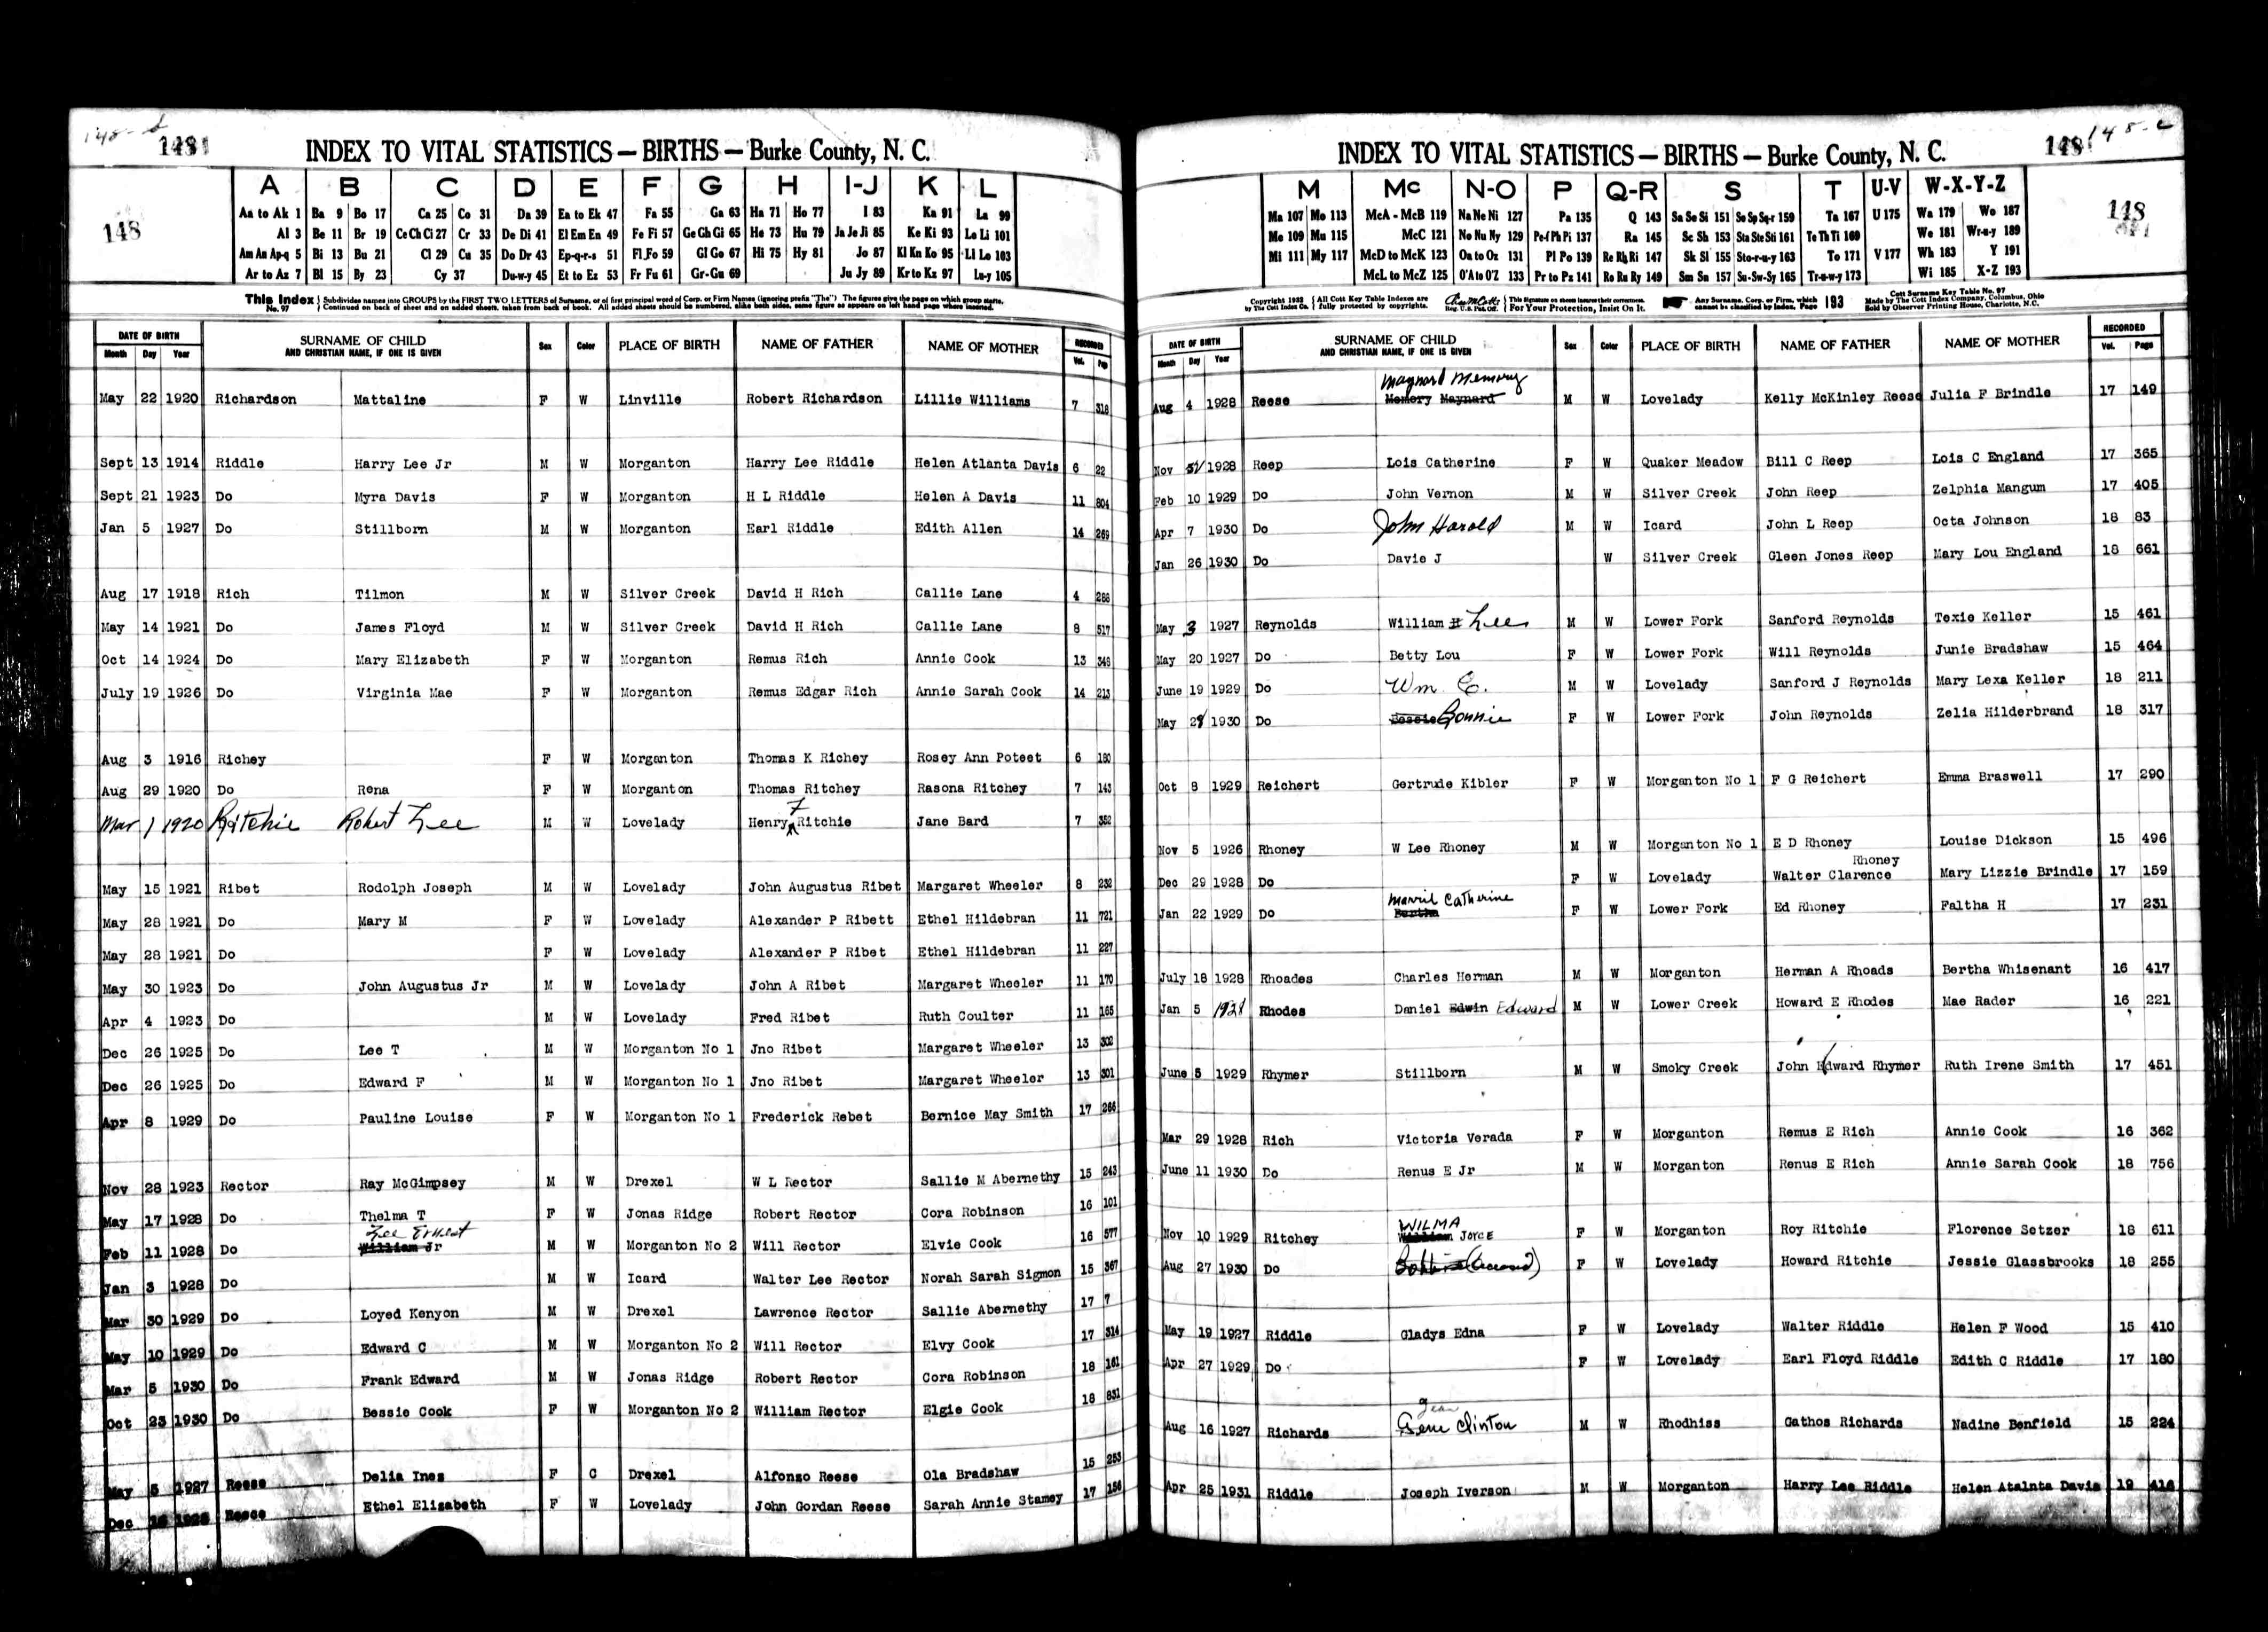 148
INDEX TO VITAL STATISTICS — BIRTHS — Burke County, N. C.
148
A B C D E F G H I-J K L
Aa to Ak 1 Ba 9 Bo 17 Ca 25 Co 31 Da 39 Ea to Ek 47 Fa 55 Ga 63 Ha 71 Ho 77 I 83 Ka 91 La 99
Al 3 Be 11 Br 19 Ce Ch Ci 27 Cr 33 De Di 41 El Em En 49 Fe Fi 57 Ge Gh Gi 65 He 73 Hu 79 Ja Je Ji 85 Ke Ki 93 Le Li 101
Am An Ap-q 5 Bi 13 Bu 21 Cl 29 Cu 35 Do Dr 43 Ep-q-r-s 51 Fl Fo 59 Gl Go 67 Hi 75 Hy 81 Jo 87 Kl Kn Ko 95 Ll Lo 103
Ar to Az 7 Bl 15 By 23 Cy 37 Du-w-y 45 Et to Ez 53 Fr Fu 61 Gr-Gu 69 Ju Jy 89 Kr to Kz 97 Lu-y 105
This Index No. 97 Subdivides names into GROUPS by the FIRST TWO LETTERS of Surname, or of first principal word of Corp. or Firm Names (ignoring prefix "The") The figures give the page on which group starts.
Continued on back of sheet and on added sheets, taken from back of book. All added sheets should be numbered, alike both sides, same figure as appears on left hand page where inserted.
DATE OF BIRTH SURNAME OF CHILD AND CHRISTIAN NAME, IF ONE IS GIVEN Sex Color PLACE OF BIRTH NAME OF FATHER NAME OF MOTHER RECORDED
Month Day Year Vol. Page
May 22 1920 Richardson Mattaline F W Linville Robert Richardson Lillie Williams 7 318
Sept 13 1914 Riddle Harry Lee Jr M W Morganton Harry Lee Riddle Helen Atlanta Davis 6 22
Sept 21 1923 Do Myra Davis F W Morganton H L Riddle Helen A Davis 11 804
Jan 5 1927 Do Stillborn M W Morganton Earl Riddle Edith Allen 14 269
Aug 17 1918 Rich Tilmon M W Silver Creek David H Rich Callie Lane 4 286
May 14 1921 Do James Floyd M W Silver Creek David H Rich Callie Lane 8 517
Oct 14 1924 Do Mary Elizabeth F W Morganton Remus Rich Annie Cook 13 346
July 19 1926 Do Virginia Mae F W Morganton Remus Edgar Rich Annie Sarah Cook 14 213
Aug 3 1916 Richey F W Morganton Thomas K Richey Rosey Ann Poteet 6 180
Aug 29 1920 Do Rena F W Morganton Thomas Ritchey Rasona Ritchey 7 143
Mar 1 1920 Ritchie Robert Lee M W Lovelady Henry F Ritchie Jane Bard 7 352
May 15 1921 Ribet Rodolph Joseph M W Lovelady John Augustus Ribet Margaret Wheeler 8 232
May 28 1921 Do Mary M F W Lovelady Alexander P Ribett Ethel Hildebran 11 721
May 28 1921 Do F W Lovelady Alexander P Ribet Ethel Hildebran 11 227
May 30 1923 Do John Augustus Jr M W Lovelady John A Ribet Margaret Wheeler 11 170
Apr 4 1923 Do M W Lovelady Fred Ribet Ruth Coulter 11 165
Dec 26 1925 Do Lee T M W Morganton No 1 Jno Ribet Margaret Wheeler 13 302
Dec 26 1925 Do Edward F M W Morganton No 1 Jno Ribet Margaret Wheeler 13 301
Apr 8 1929 Do Pauline Louise F W Morganton No 1 Frederick Rebet Bernice May Smith 17 266
Nov 28 1923 Rector Ray McGimpsey M W Drexel W L Rector Sallie M Abernethy 15 243
May 17 1928 Do Thelma T F W Jonas Ridge Robert Rector Cora Robinson 16 101
Lee Ernest
Feb 11 1928 Do William Jr M W Morganton No 2 Will Rector Elvie Cook 16 577
Jan 3 1928 Do M W Icard Walter Lee Rector Norah Sarah Sigmon 15 367
Mar 30 1929 Do Loyed Kenyon M W Drexel Lawrence Rector Sallie Abernethy 17 7
May 10 1929 Do Edward C M W Morganton No 2 Will Rector Elvy Cook 17 314
Mar 5 1930 Do Frank Edward M W Jonas Ridge Robert Rector Cora Robinson 18 161
Oct 23 1930 Do Bessie Cook F W Morganton No 2 William Rector Elgie Cook 18 831
May 5 1927 Reese Delia Ines F C Drexel Alfonso Reese Ola Bradshaw 15 253
Dec 1928 Reese Ethel Elizabeth F W Lovelady John Gordan Reese Sarah Annie Stamey 17 156
148
148-c
INDEX TO VITAL STATISTICS — BIRTHS — Burke County, N. C.
148
M Mc N-O P Q-R S T U-V W-X-Y-Z
Ma 107 Mo 113 McA - McB 119 Na Ne Ni 127 Pa 135 Q 143 Sa Se Si 151 So Sp Sq-r 159 Ta 167 U 175 Wa 179 Wo 187
Me 109 Mu 115 McC 121 No Nu Ny 129 Pe-f Ph Pi 137 Ra 145 Sc Sh 153 Sta Ste Sti 161 Te Th Ti 169 We 181 Wr-u-y 189
Mi 111 My 117 McD to McK 123 Oa to Oz 131 Pl Po 139 Re Rh Ri 147 Sk Sl 155 Sto-r-u-y 163 To 171 V 177 Wh 183 Y 191
McL to McZ 125 O'A to O'Z 133 Pr to Pz 141 Ro Ru Ry 149 Sm Sn 157 Su-Sw-Sy 165 Tr-u-w-y 173 Wi 185 X-Z 193
Copyright 1932 by The Cott Index Co. All Cott Key Table Indexes are fully protected by copyrights. Reg. U.S. Pat. Off. This Signature on sheets insures their correctness. For Your Protection, Insist On It. Any Surname, Corp. or Firm, which cannot be classified by Index, Page 193 Cott Surname Key Table No. 97 Made by The Cott Index Company, Columbus, Ohio Sold by Observer Printing House, Charlotte, N.C.
DATE OF BIRTH SURNAME OF CHILD AND CHRISTIAN NAME, IF ONE IS GIVEN Sex Color PLACE OF BIRTH NAME OF FATHER NAME OF MOTHER RECORDED
Month Day Year Vol. Page
Maynard Memory
Aug 4 1928 Reese Memory Maynard M W Lovelady Kelly McKinley Reese Julia F Brindle 17 149
Nov 1928 Reep Lois Catherine F W Quaker Meadow Bill C Reep Lois C England 17 365
Feb 10 1929 Do John Vernon M W Silver Creek John Reep Zelphia Mangum 17 405
Apr 7 1930 Do John Harold M W Icard John L Reep Octa Johnson 18 83
Jan 26 1930 Do Davie J W Silver Creek Gleen Jones Reep Mary Lou England 18 661
May 3 1927 Reynolds William H Lee M W Lower Fork Sanford Reynolds Texie Keller 15 461
May 20 1927 Do Betty Lou F W Lower Fork Will Reynolds Junie Bradshaw 15 464
June 19 1929 Do Wm C. M W Lovelady Sanford J Reynolds Mary Lexa Keller 18 211
May 1930 Do Bessie Bonnie F W Lower Fork John Reynolds Zelia Hilderbrand 18 317
Oct 8 1929 Reichert Gertrude Kibler F W Morganton No 1 F G Reichert Emma Braswell 17 290
Nov 5 1926 Rhoney W Lee Rhoney M W Morganton No 1 E D Rhoney Louise Dickson 15 496
Rhoney
Dec 29 1928 Do F W Lovelady Walter Clarence Mary Lizzie Brindle 17 159
Catherine
Jan 22 1929 Do Bertha F W Lower Fork Ed Rhoney Faltha H 17 231
July 18 1928 Rhoades Charles Herman M W Morganton Herman A Rhoads Bertha Whisenant 16 417
Jan 5 1928 Rhodes Daniel Edwin Edward M W Lower Creek Howard E Rhodes Mae Rader 16 221
June 5 1929 Rhymer Stillborn M W Smoky Creek John Edward Rhymer Ruth Irene Smith 17 451
Mar 29 1928 Rich Victoria Verada F W Morganton Remus E Rich Annie Cook 16 362
June 11 1930 Do Renus E Jr M W Morganton Renus E Rich Annie Sarah Cook 18 756
WILMA
Nov 10 1929 Ritchey William JOYCE F W Morganton Roy Ritchie Florence Setzer 18 611
Aug 27 1930 Do F W Lovelady Howard Ritchie Jessie Glassbrooks 18 255
May 19 1927 Riddle Gladys Edna F W Lovelady Walter Riddle Helen F Wood 15 410
Apr 27 1929 Do F W Lovelady Earl Floyd Riddle Edith C Riddle 17 180
Jean
Aug 16 1927 Richards Gene Clinton M W Rhodhiss Gathos Richards Nadine Benfield 15 224
Apr 25 1931 Riddle Joseph Iverson M W Morganton Harry Lee Riddle Helen Atalnta Davis 19 416